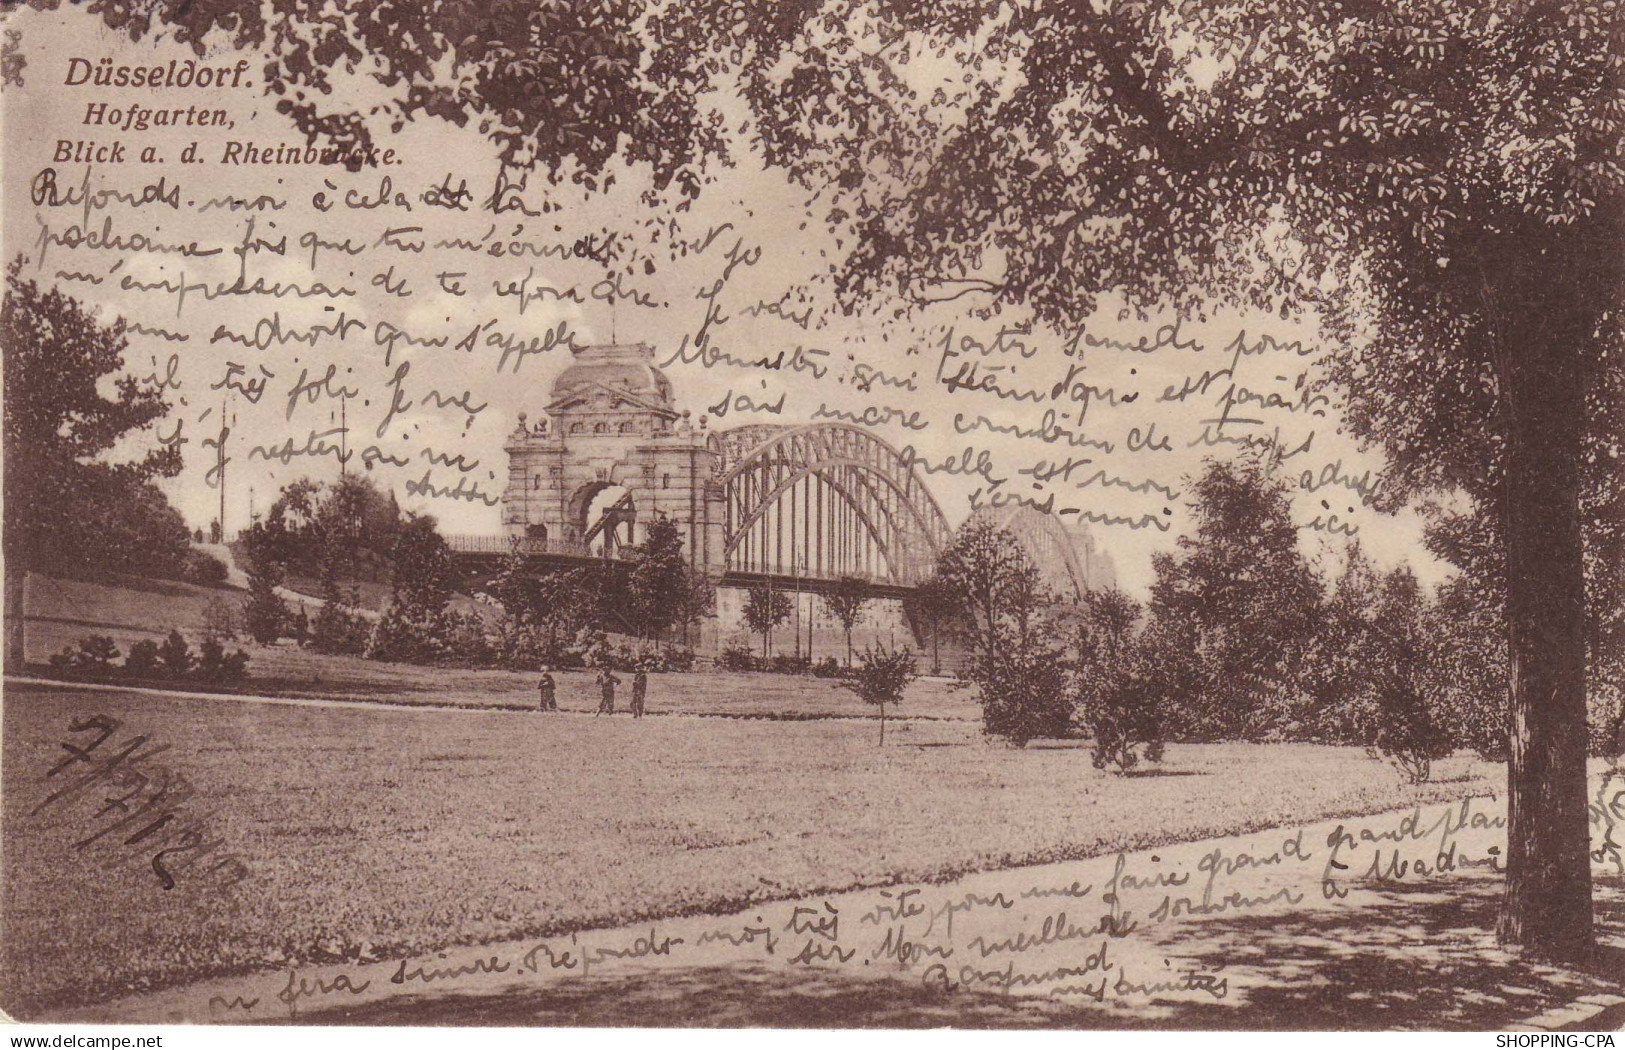 Düsseldorf.
Hofgarten,
Blick a. d. Rheinbrücke.
Réponds-moi à cela la
prochaine fois que tu m'écriras et je
m'empresserai de te répondre. Je vais partir samedi pour
un endroit qui s'appelle Munster qui est paraît-
il très joli. Je ne sais encore combien de temps
j'y resterai ni quelle est mon adresse
Aussi écris-moi ici
7/7/12
Réponds-moi très vite, pour me faire grand grand plai
sir. Mon meilleur souvenir à Madame
Raymond
mes amitiés
fera suivre.
SHOPPING-CPA